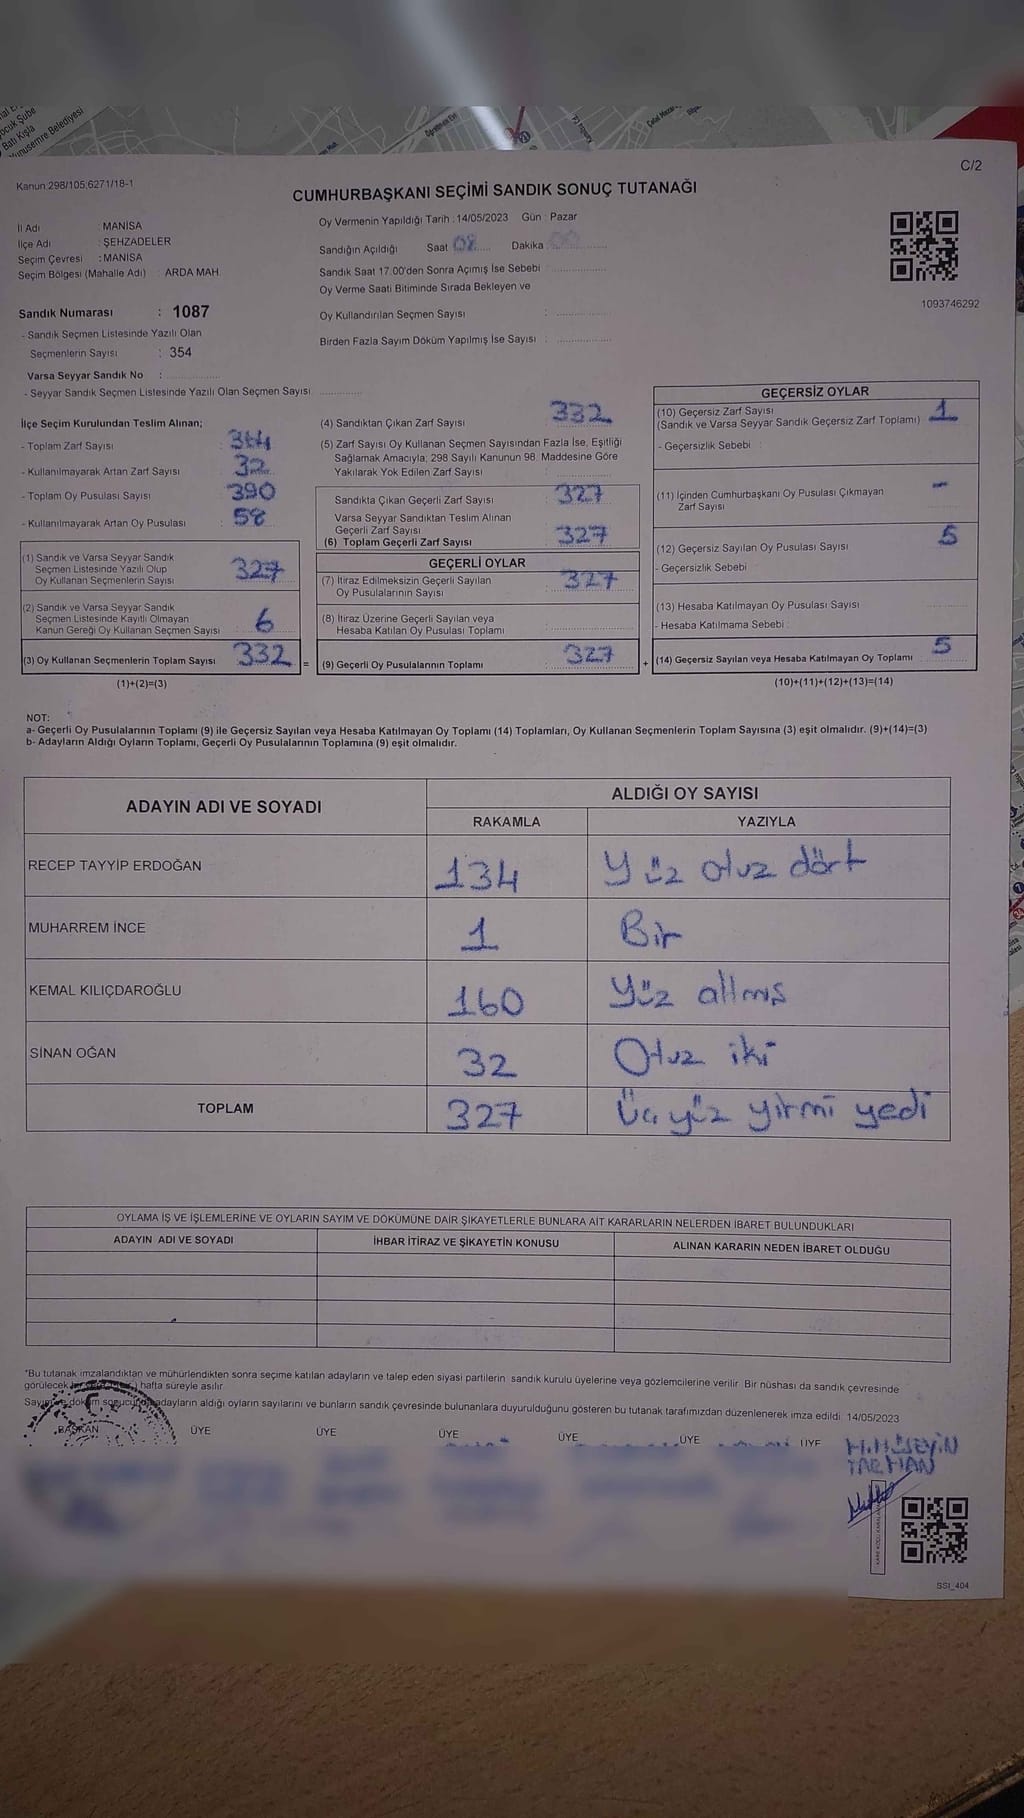 C/2
Kanun:298/105;6271/18-1
CUMHURBAŞKANI SEÇİMİ SANDIK SONUÇ TUTANAĞI
İl Adı : MANİSA
İlçe Adı : ŞEHZADELER
Seçim Çevresi : MANİSA
Seçim Bölgesi (Mahalle Adı) : ARDA MAH.
Oy Vermenin Yapıldığı Tarih : 14/05/2023 Gün : Pazar
Sandığın Açıldığı Saat 08 Dakika 00
Sandık Saat 17:00'den Sonra Açımış İse Sebebi :
Oy Verme Saati Bitiminde Sırada Bekleyen ve
Oy Kullandırılan Seçmen Sayısı :
Birden Fazla Sayım Döküm Yapılmış İse Sayısı :
1093746292
Sandık Numarası : 1087
- Sandık Seçmen Listesinde Yazılı Olan
Seçmenlerin Sayısı : 354
Varsa Seyyar Sandık No :
- Seyyar Sandık Seçmen Listesinde Yazılı Olan Seçmen Sayısı
İlçe Seçim Kurulundan Teslim Alınan;
- Toplam Zarf Sayısı :
- Kullanılmayarak Artan Zarf Sayısı : 32
- Toplam Oy Pusulası Sayısı : 390
- Kullanılmayarak Artan Oy Pusulası : 58
(1) Sandık ve Varsa Seyyar Sandık
Seçmen Listesinde Yazılı Olup
Oy Kullanan Seçmenlerin Sayısı 327
(2) Sandık ve Varsa Seyyar Sandık
Seçmen Listesinde Kayıtlı Olmayan
Kanun Gereği Oy Kullanan Seçmen Sayısı 6
(3) Oy Kullanan Seçmenlerin Toplam Sayısı 332 =
(1)+(2)=(3)
(4) Sandıktan Çıkan Zarf Sayısı 332
(5) Zarf Sayısı Oy Kullanan Seçmen Sayısından Fazla İse, Eşitliği
Sağlamak Amacıyla, 298 Sayılı Kanunun 98. Maddesine Göre
Yakılarak Yok Edilen Zarf Sayısı :
Sandıkta Çıkan Geçerli Zarf Sayısı : 327
Varsa Seyyar Sandıktan Teslim Alınan
Geçerli Zarf Sayısı
(6) Toplam Geçerli Zarf Sayısı 327
GEÇERLİ OYLAR
(7) İtiraz Edilmeksizin Geçerli Sayılan
Oy Pusulalarının Sayısı 327
(8) İtiraz Üzerine Geçerli Sayılan veya
Hesaba Katılan Oy Pusulası Toplamı
(9) Geçerli Oy Pusulalarının Toplamı 327 +
GEÇERSİZ OYLAR
(10) Geçersiz Zarf Sayısı
(Sandık ve Varsa Seyyar Sandık Geçersiz Zarf Toplamı) 1
- Geçersizlik Sebebi :
(11) İçinden Cumhurbaşkanı Oy Pusulası Çıkmayan
Zarf Sayısı -
(12) Geçersiz Sayılan Oy Pusulası Sayısı 5
- Geçersizlik Sebebi
(13) Hesaba Katılmayan Oy Pusulası Sayısı
- Hesaba Katılmama Sebebi :
(14) Geçersiz Sayılan veya Hesaba Katılmayan Oy Toplamı 5
(10)+(11)+(12)+(13)=(14)
NOT:
a- Geçerli Oy Pusulalarının Toplamı (9) ile Geçersiz Sayılan veya Hesaba Katılmayan Oy Toplamı (14) Toplamları, Oy Kullanan Seçmenlerin Toplam Sayısına (3) eşit olmalıdır. (9)+(14)=(3)
b- Adayların Aldığı Oyların Toplamı, Geçerli Oy Pusulalarının Toplamına (9) eşit olmalıdır.
ADAYIN ADI VE SOYADI
ALDIĞI OY SAYISI
RAKAMLA YAZIYLA
RECEP TAYYİP ERDOĞAN 134 Yüz otuz dört
MUHARREM İNCE 1 Bir
KEMAL KILIÇDAROĞLU 160 Yüz altmış
SİNAN OĞAN 32 Otuz iki
TOPLAM 327 Üç yüz yirmi yedi
OYLAMA İŞ VE İŞLEMLERİNE VE OYLARIN SAYIM VE DÖKÜMÜNE DAİR ŞİKAYETLERLE BUNLARA AİT KARARLARIN NELERDEN İBARET BULUNDUKLARI
ADAYIN ADI VE SOYADI İHBAR İTİRAZ VE ŞİKAYETİN KONUSU ALINAN KARARIN NEDEN İBARET OLDUĞU
*Bu tutanak imzalandıktan ve mühürlendikten sonra seçime katılan adayların ve talep eden siyasi partilerin sandık kurulu üyelerine veya gözlemcilerine verilir. Bir nüshası da sandık çevresinde
görülecek hafta süreyle asılır.
adayların aldığı oyların sayılarını ve bunların sandık çevresinde bulunanlara duyurulduğunu gösteren bu tutanak tarafımızdan düzenlenerek imza edildi. 14/05/2023
BAŞKAN ÜYE ÜYE ÜYE ÜYE ÜYE ÜYE
M.HÜSEYİN
TARHAN
SSI_404